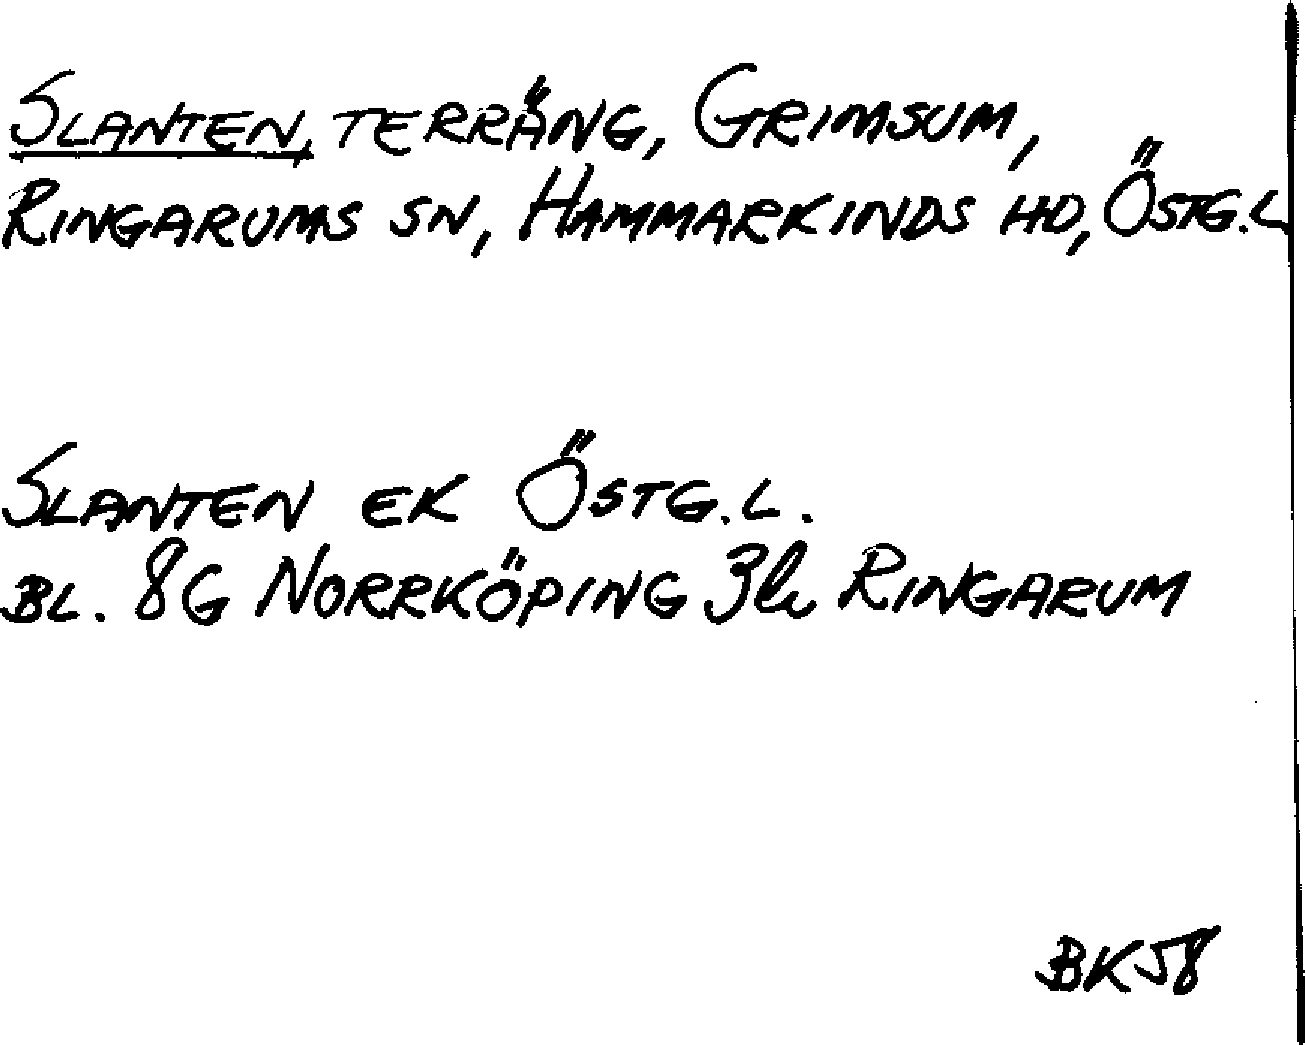 SLANTEN, TERRÄNG, GRIMSUM,
RINGARUMS SN, HAMMARKINDS HD, ÖSTG.L
SLANTEN EK ÖSTG.L.
BL. 8G NORRKÖPING 3h RINGARUM
BK58